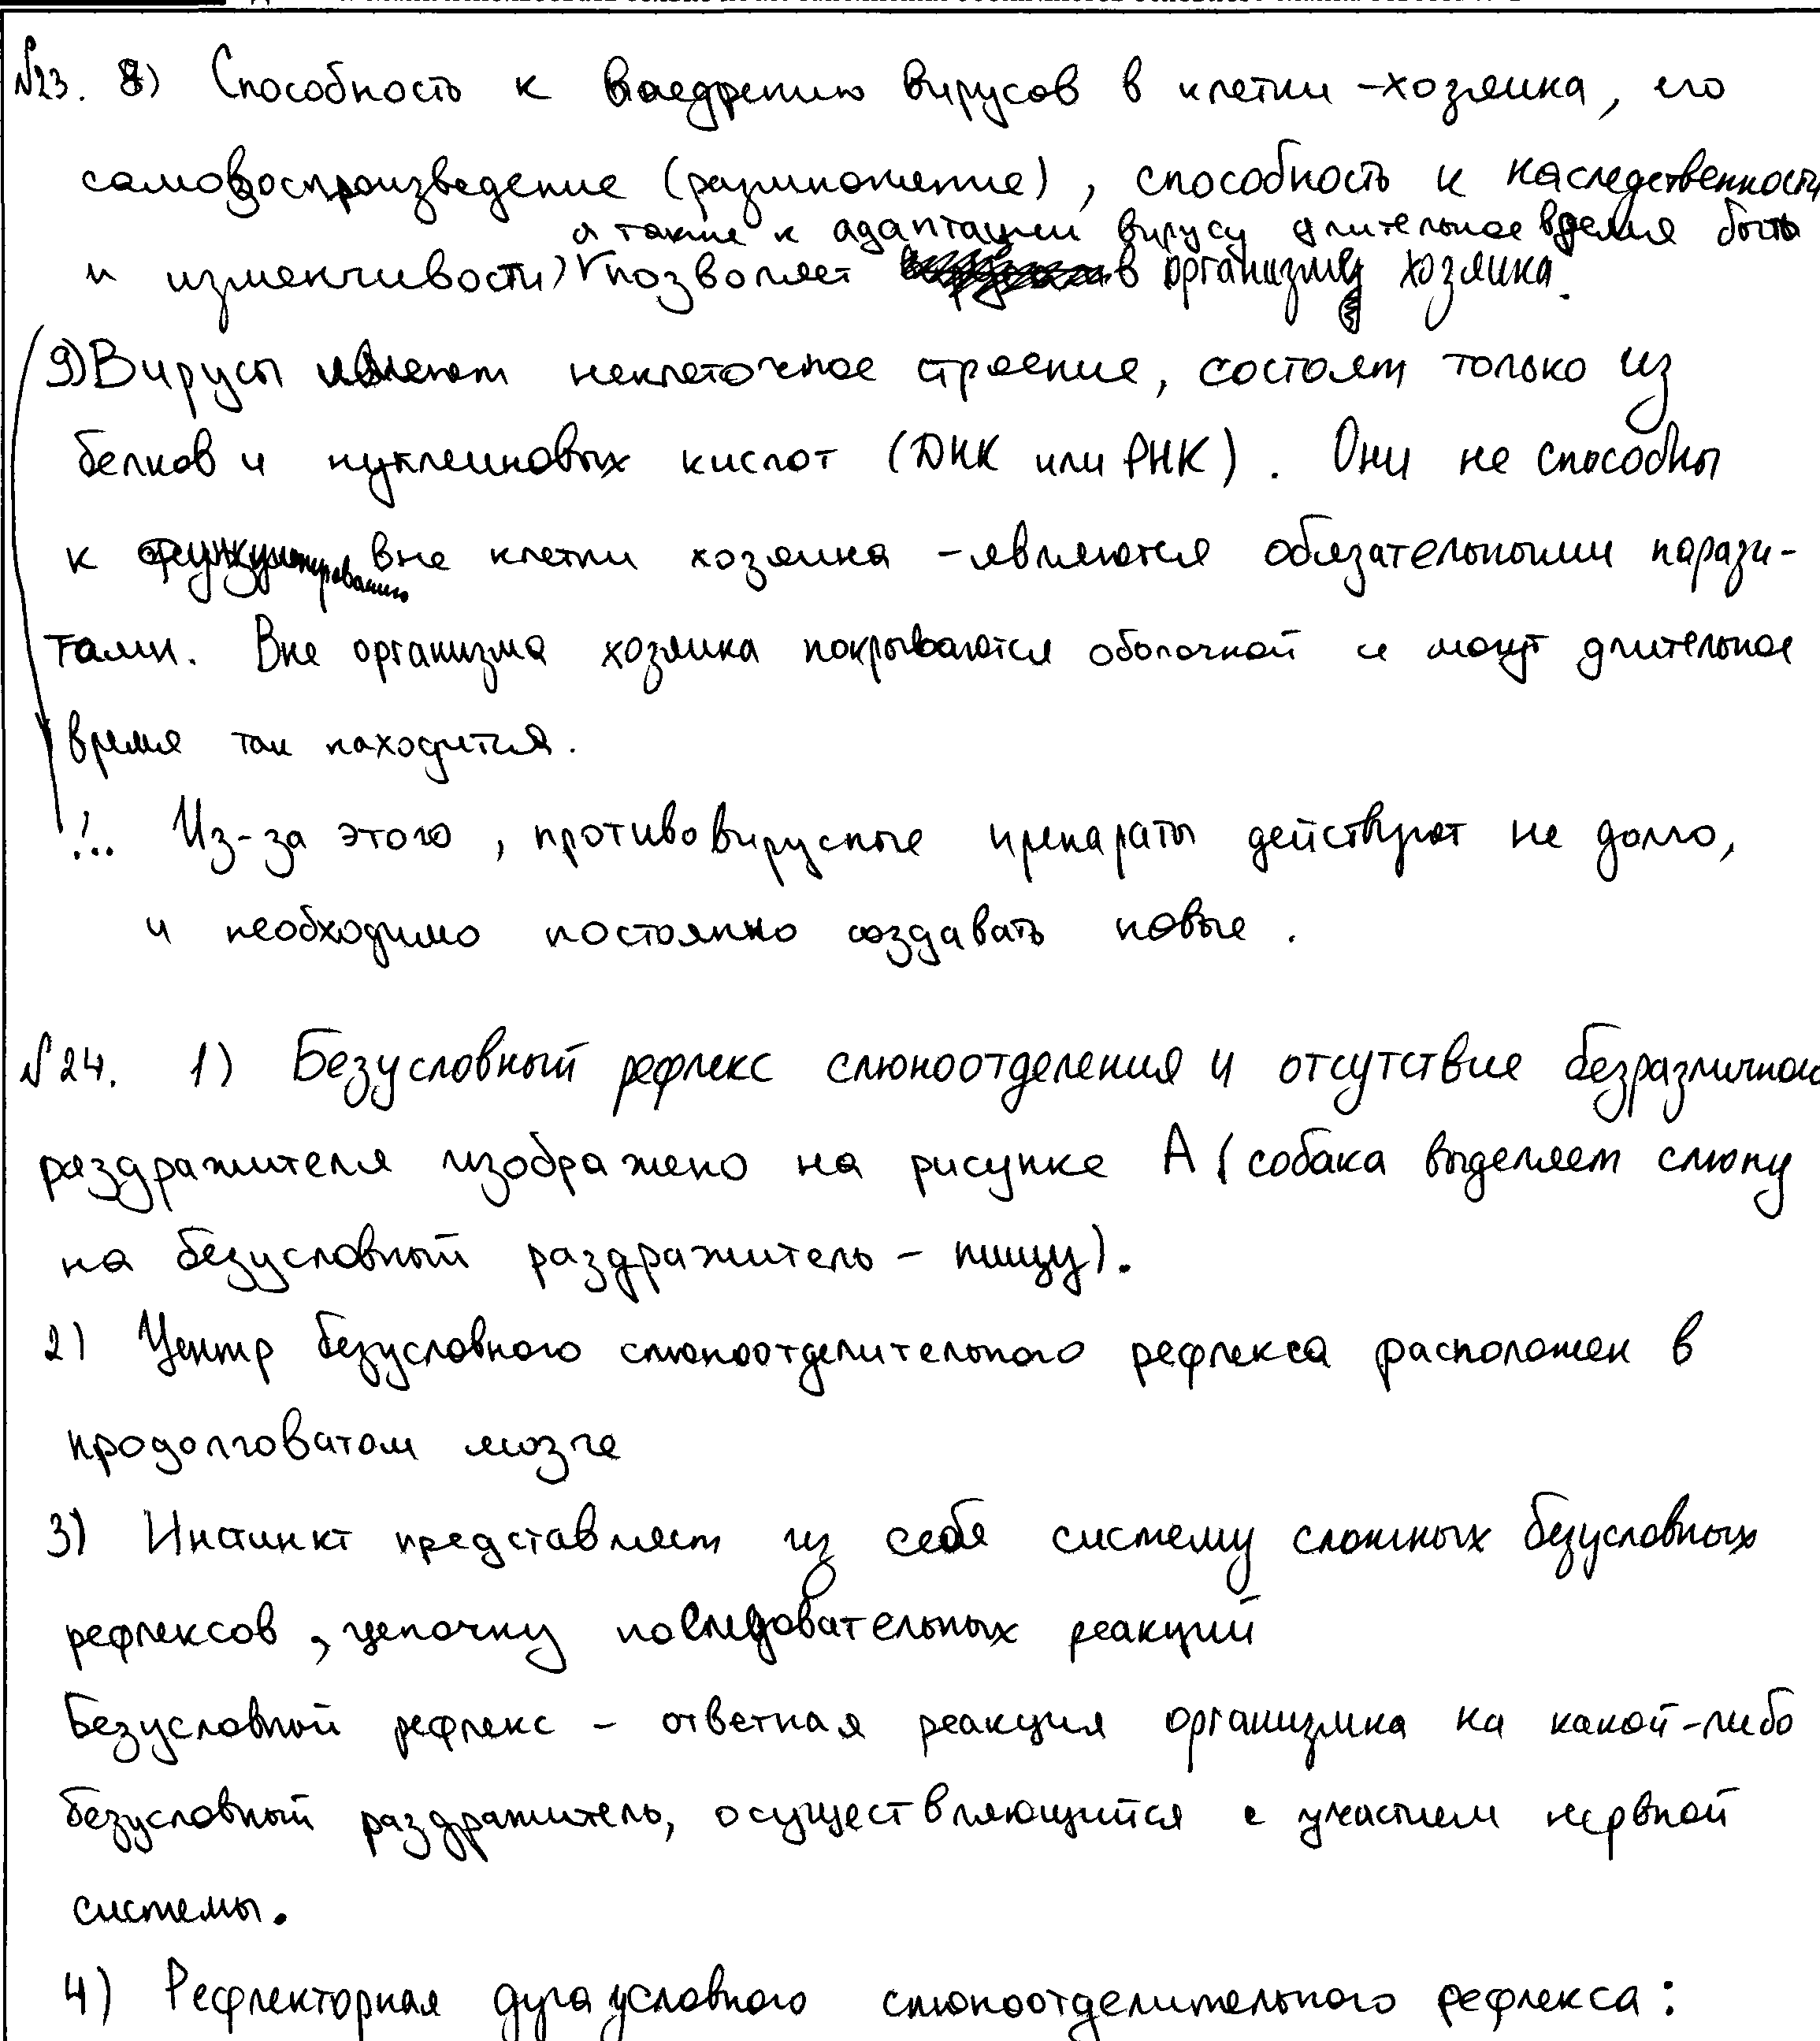 №23. 8) Способность к внедрению вирусов в клетки-хозяина, его
самовоспроизведение (размножение), способность к наследственности
а также к адаптации вирусу длительное время быть
и изменчивости) позволяет в организме хозяина.
9) Вирусы имеют неклеточное строение, состоят только из
белков и нуклеиновых кислот (ДНК или РНК). Они не способны
к функционированию вне клетки хозяина - являются обязательными парази-
тами. Вне организма хозяина покрываются оболочкой и могут длительное
время так находится.
!.. Из-за этого, противовирусные препараты действуют не долго,
и необходимо постоянно создавать новые.
№24. 1) Безусловный рефлекс слюноотделения и отсутствие безразличного
раздражителя изображено на рисунке А (собака выделяет слюну
на безусловный раздражитель - пищу).
2) Центр безусловного слюноотделительного рефлекса расположен в
продолговатом мозге
3) Инстинкт представляет из себя систему сложных безусловных
рефлексов, цепочку последовательных реакций
Безусловный рефлекс - ответная реакция организма на какой-либо
безусловный раздражитель, осуществляющийся с участием нервной
системы.
4) Рефлекторная дуга условного слюноотделительного рефлекса: